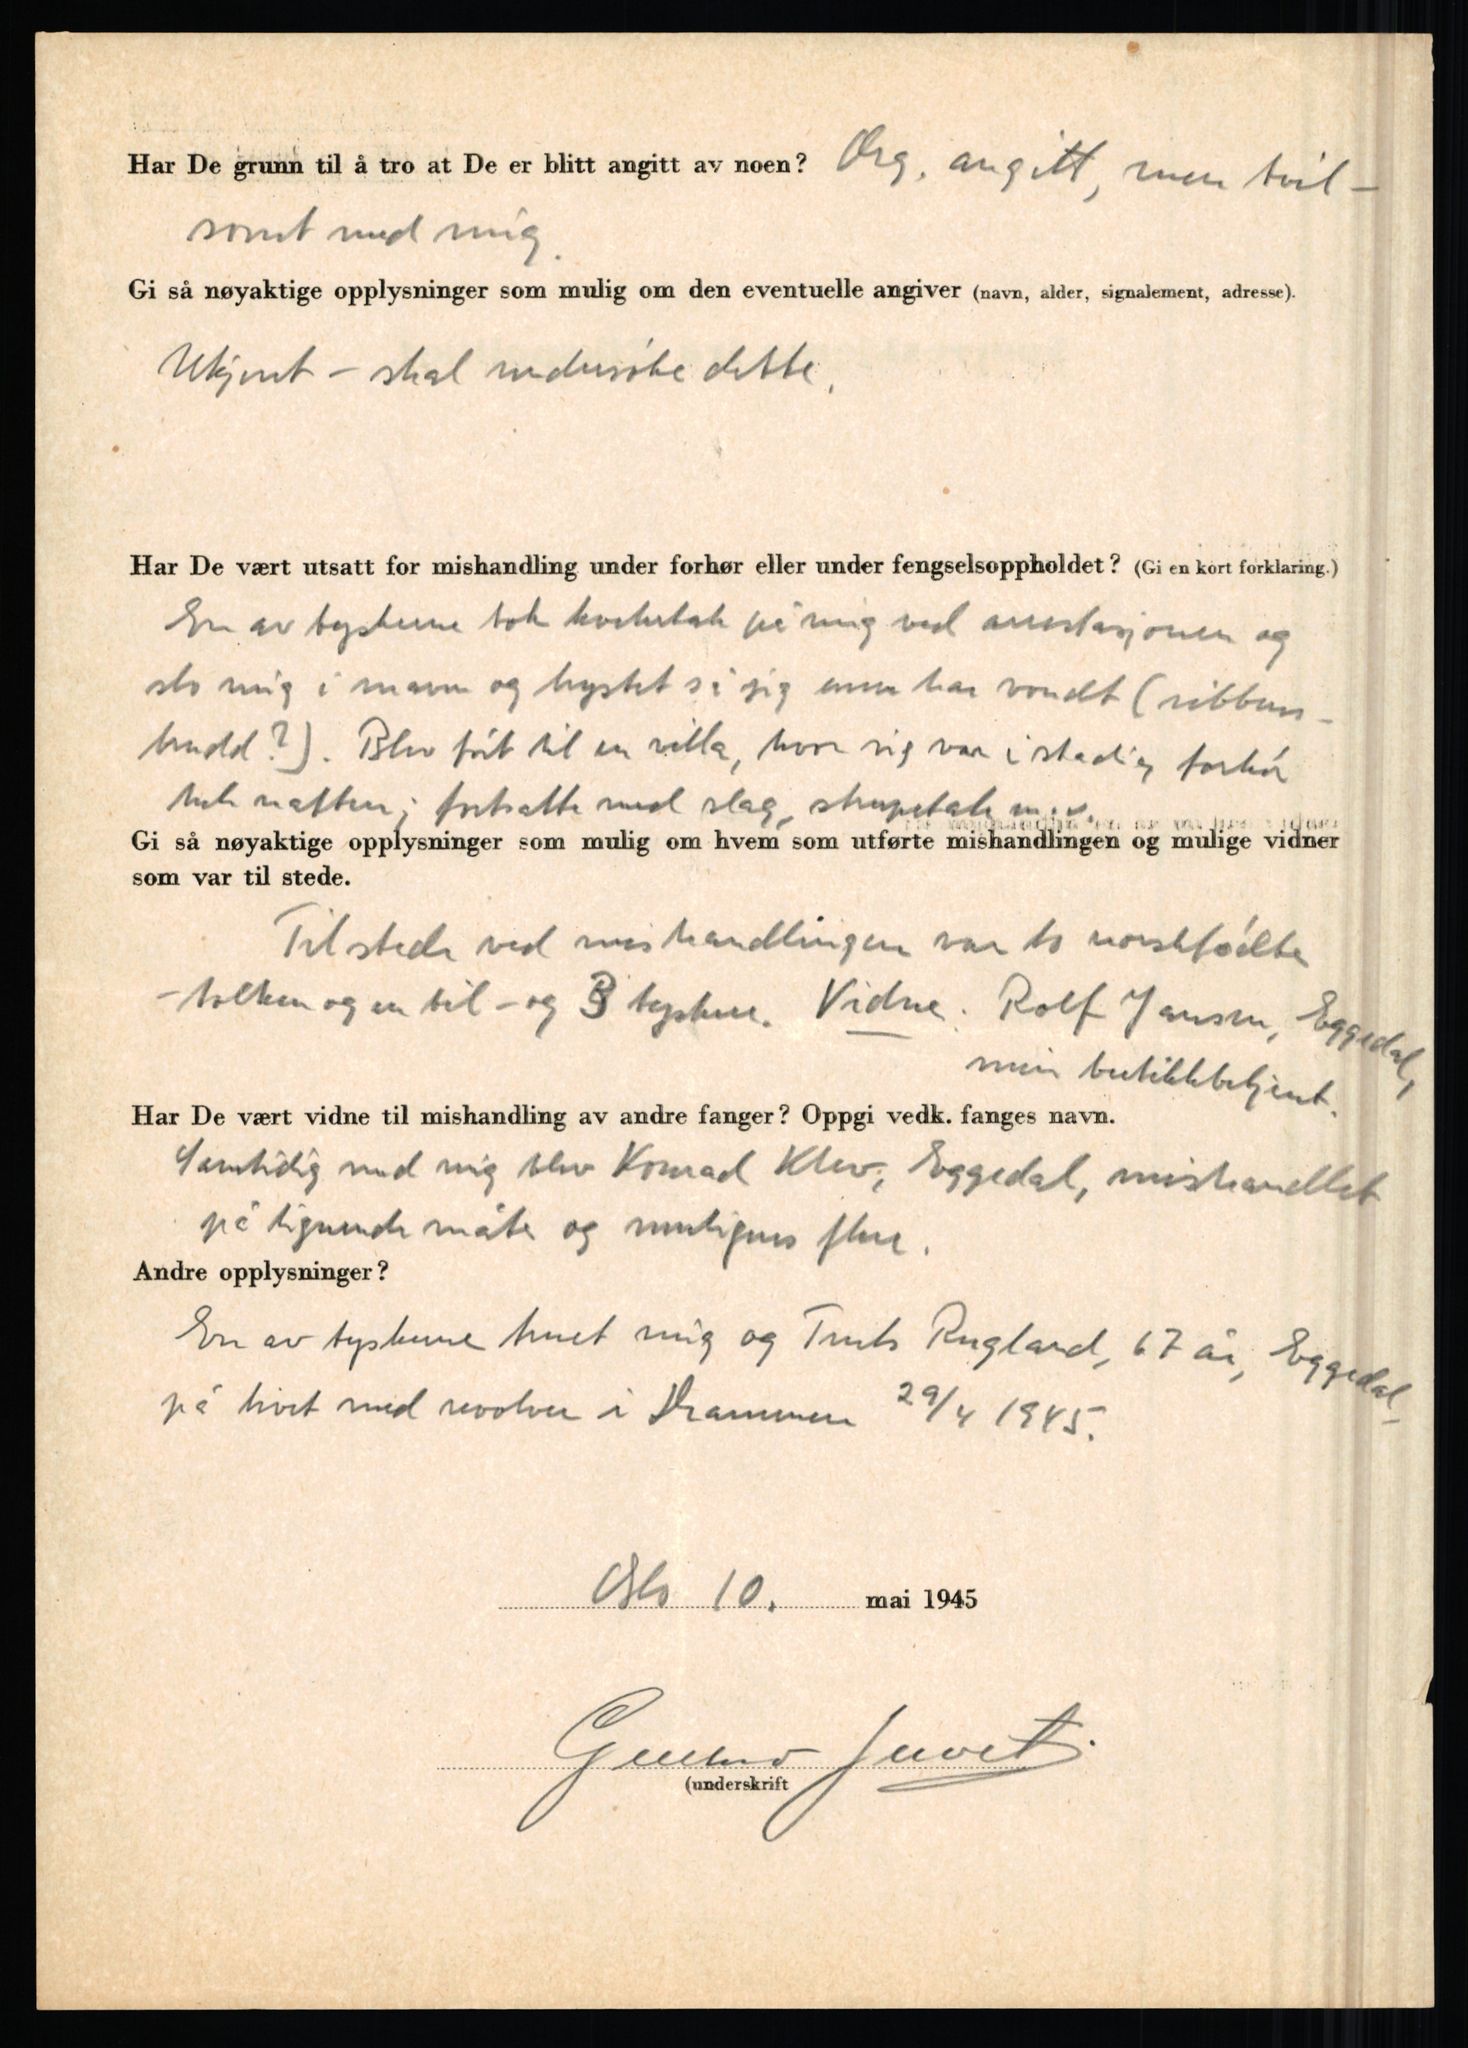 Har De grunn til å tro at De er blitt angitt av noen? Org. angitt, men tvil-
somt med mig.
Gi så nøyaktige opplysninger som mulig om den eventuelle angiver (navn, alder, signalement, adresse).
Ukjent – skal undersöke dette.
Har De vært utsatt for mishandling under forhør eller under fengselsoppholdet? (Gi en kort forklaring.)
En av tyskerne tok kveletak på mig ved arrestasjonen og
slo mig i maven og brystet så jeg ennu har vondt (ribbens-
brudd?). Blev fört til en villa, hvor jeg var i stadig forhör
hele natten; fortsatte med slag, strupetak m.v.
Gi så nøyaktige opplysninger som mulig om hvem som utførte mishandlingen og mulige vidner
som var til stede.
Tilstede ved mishandlingen var to norskfödte
– tolken og en til – og 3 tyskere. Vidne: Rolf Jansen, Eggedal,
min butikkbetjent.
Har De vært vidne til mishandling av andre fanger? Oppgi vedk. fanges navn.
Samtidig med mig blev Konrad Klev, Eggedal, mishandlet
på lignende måte og muligens flere.
Andre opplysninger?
En av tyskerne truet mig og Truls Rugland, 67 år, Eggedal –
på livet med revolver i Drammen 29/4 1945.
Oslo 10. mai 1945
Gustav Juvet.
(underskrift